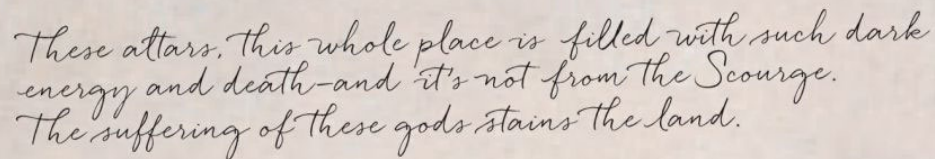 These altars, this whole place is filled with such dark
energy and death–and it's not from the Scourge.
The suffering of these gods stains the land.